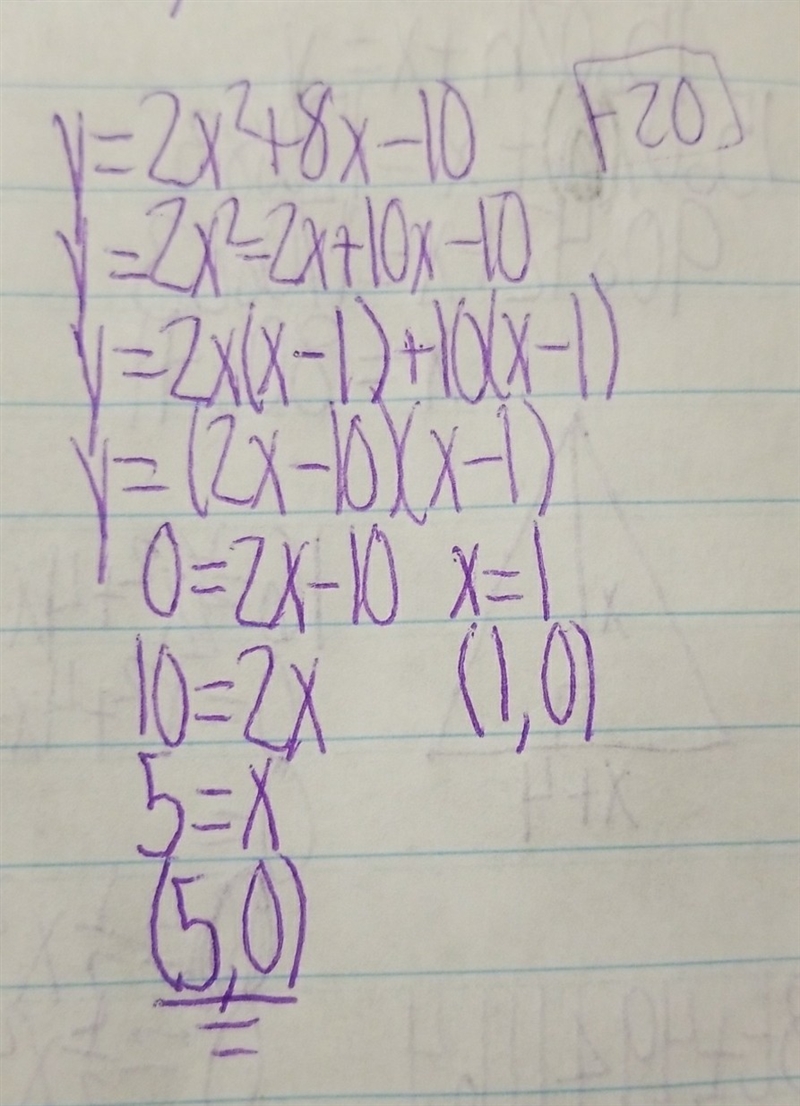 y=2x²+8x-10 -20
y=2x²-2x+10x-10
y=2x(x-1)+10(x-1)
y=(2x-10)(x-1)
0=2x-10 x=1
10=2x (1,0)
5=x
(5,0)